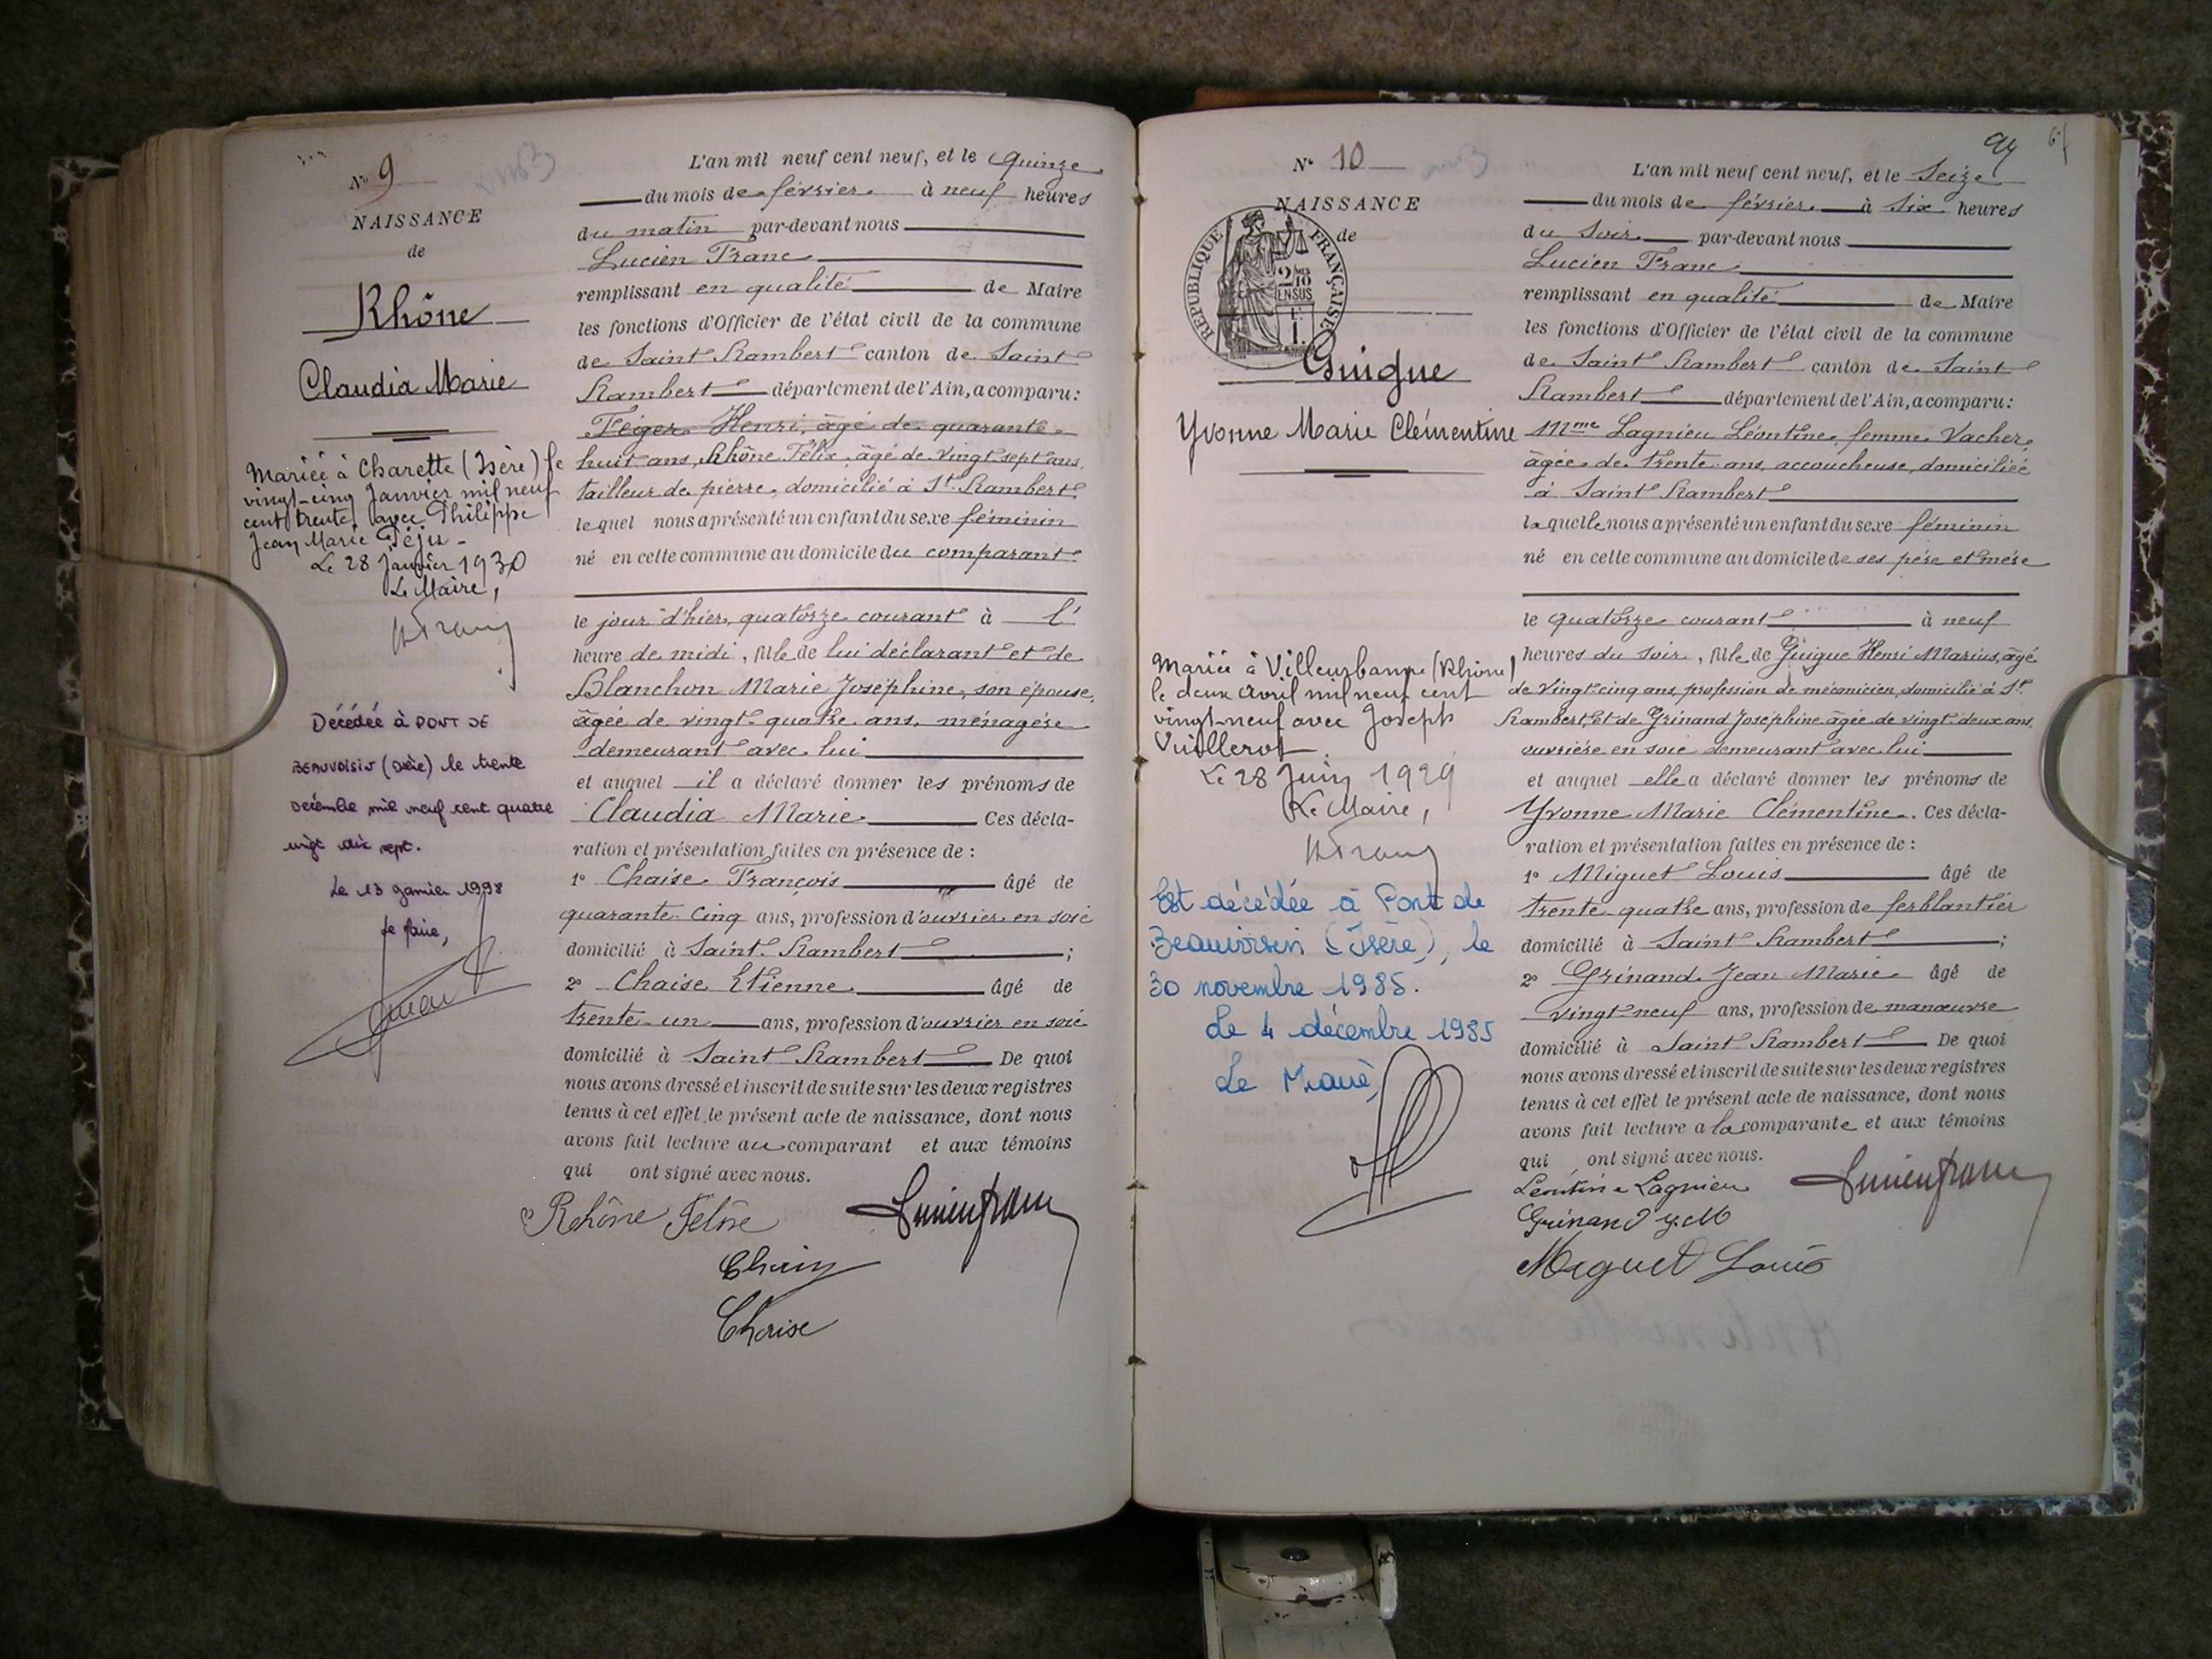 N° 9
NAISSANCE
de
Rhône
Claudia Marie
Mariée à Charette (Isère) le
vingt-cinq Janvier mil neuf
cent trente avec Philippe
Jean Marie Péju -
Le 28 Janvier 1930
Le Maire,
Décédée à PONT DE
BEAUVOISIN (Isère) le trente
Décembre mil neuf cent quatre
vingt dix sept.
Le 13 janvier 1998
Le Maire,
L'an mil neuf cent neuf, et le quinze
du mois de février à neuf heures
du matin par-devant nous
Lucien Franc
remplissant en qualité de Maire
les fonctions d'Officier de l'état civil de la commune
de Saint Rambert canton de Saint
Rambert département de l'Ain, a comparu :
Féger Henri, âgé de quarante
huit ans, Rhône Félix, âgé de vingt sept ans,
tailleur de pierre, domicilié à St Rambert,
lequel nous a présenté un enfant du sexe féminin
né en cette commune au domicile du comparant
le jour d'hier, quatorze courant à l'
heure de midi, fille de lui déclarant et de
Blanchon Marie Joséphine, son épouse,
âgée de vingt quatre ans, ménagère
demeurant avec lui
et auquel il a déclaré donner les prénoms de
Claudia Marie Ces décla-
ration et présentation faites en présence de :
1° Chaise François âgé de
quarante-cinq ans, profession d'ouvrier en soie
domicilié à Saint-Rambert ;
2° Chaise Etienne âgé de
trente-un ans, profession d'ouvrier en soie
domicilié à Saint Rambert De quoi
nous avons dressé et inscrit de suite sur les deux registres
tenus à cet effet le présent acte de naissance, dont nous
avons fait lecture au comparant et aux témoins
qui ont signé avec nous.
Rhône Félix Lucien Franc
Chaise
N° 10
NAISSANCE
de
RÉPUBLIQUE FRANÇAISE
2/10 EN SUS
Guigue
Yvonne Marie Clémentine
Mariée à Villeurbanne (Rhône)
le deux avril mil neuf cent
vingt-neuf avec Joseph
Vuillerot
Le 28 Juin 1929
Le Maire,
Est décédée à Pont de
Beauvoisin (Isère), le
30 novembre 1985.
Le 4 décembre 1985
Le Maire,
L'an mil neuf cent neuf, et le Seize
du mois de février à six heures
du soir par-devant nous
Lucien Franc
remplissant en qualité de Maire
les fonctions d'Officier de l'état civil de la commune
de Saint Rambert canton de Saint
Rambert département de l'Ain, a comparu :
Mme Lagnieu Léontine, femme Vacher,
âgée de trente ans, accoucheuse, domiciliée
à Saint Rambert
laquelle nous a présenté un enfant du sexe féminin
né en cette commune au domicile de ses père et mère
le quatorze courant à neuf
heures du soir, fille de Guigue Henri Marius, âgé
de vingt cinq ans, profession de mécanicien, domicilié à St
Rambert, et de Grinand Joséphine âgée de vingt-deux ans,
ouvrière en soie demeurant avec lui
et auquel elle a déclaré donner les prénoms de
Yvonne Marie Clémentine. Ces décla-
ration et présentation faites en présence de :
1° Miguet Louis âgé de
trente quatre ans, profession de ferblantier
domicilié à Saint Rambert ;
2° Grinand Jean Marie âgé de
vingt-neuf ans, profession de manœuvre
domicilié à Saint Rambert De quoi
nous avons dressé et inscrit de suite sur les deux registres
tenus à cet effet le présent acte de naissance, dont nous
avons fait lecture a la comparante et aux témoins
qui ont signé avec nous.
Léontine Lagnieu Lucien Franc
Grinand J.M
Miguet Louis